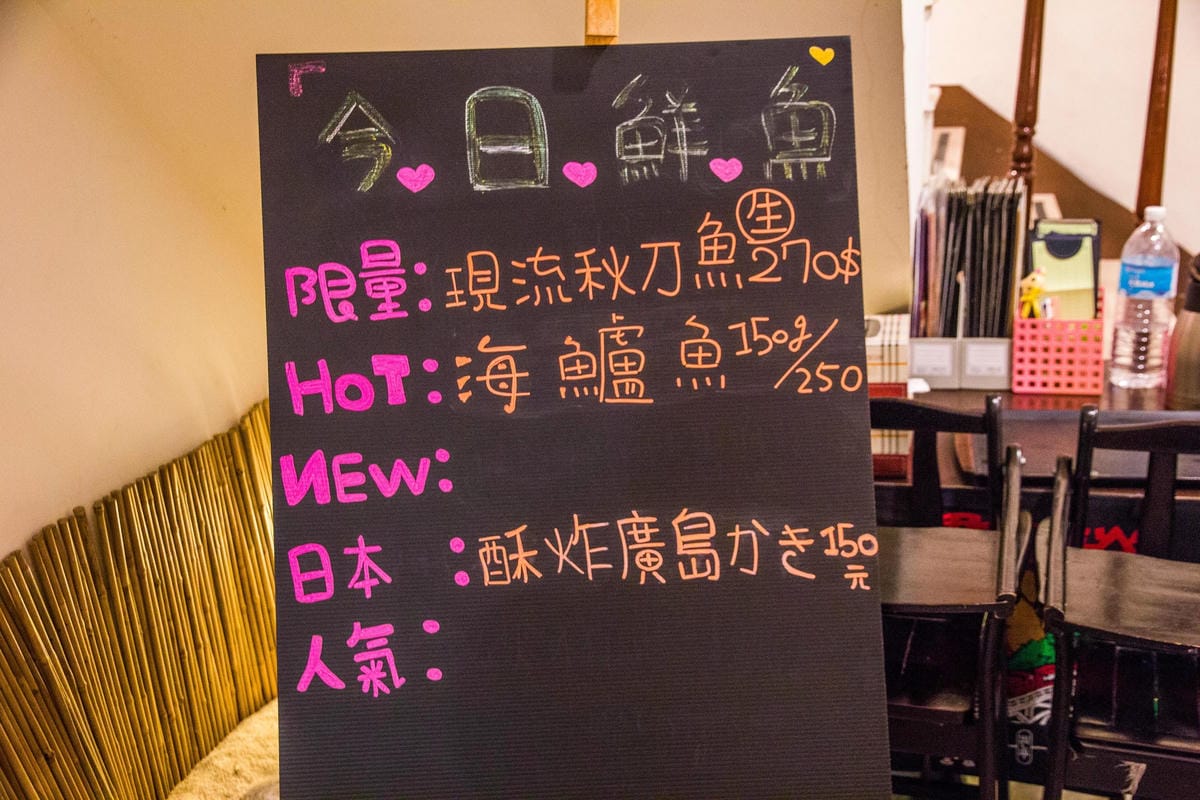 今日鮮魚
限量：現流秋刀魚 生 270$
HOT：海鱸魚 150g/250
NEW：
日本：酥炸廣島かき 150元
人氣：